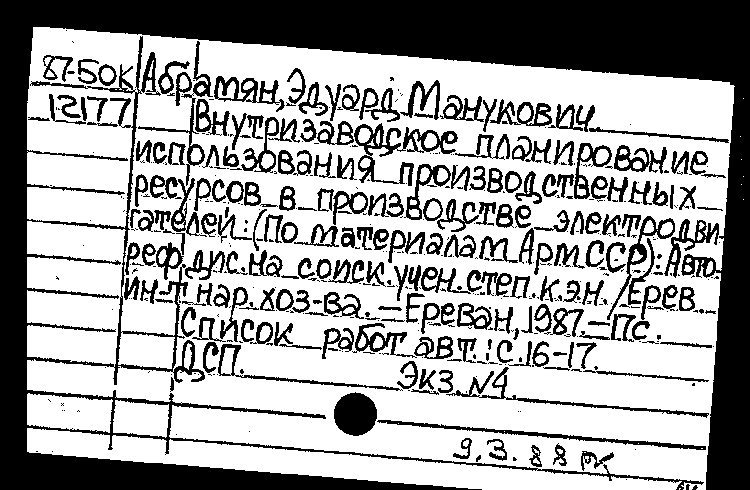 87-50к Абрамян, Эдуард Манукович.
12177 Внутризаводское планирование
использования производственных
ресурсов в производстве электродви-
гателей: (По материалам Арм ССР): Авто-
реф. дис. на соиск. учен. степ. к.э.н. / Ерев.
ин-т нар. хоз-ва. — Ереван, 1987. — 17с.
Список работ авт.: с. 16-17.
ДСП. Экз. N4.
9.3.88